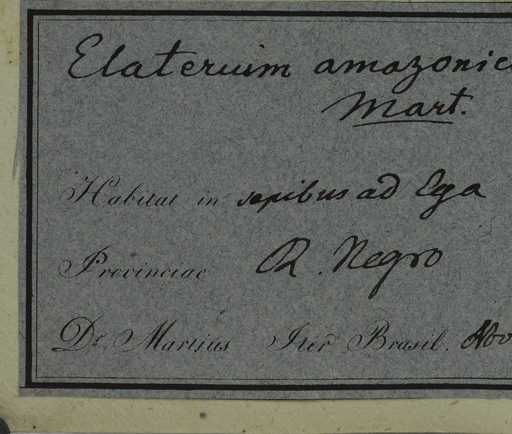 Elaterium amazonic
Mart.
Habitat in sepibus ad Ega
Provinciae R. Negro
Dr. Martius Iter Brasil. Nov